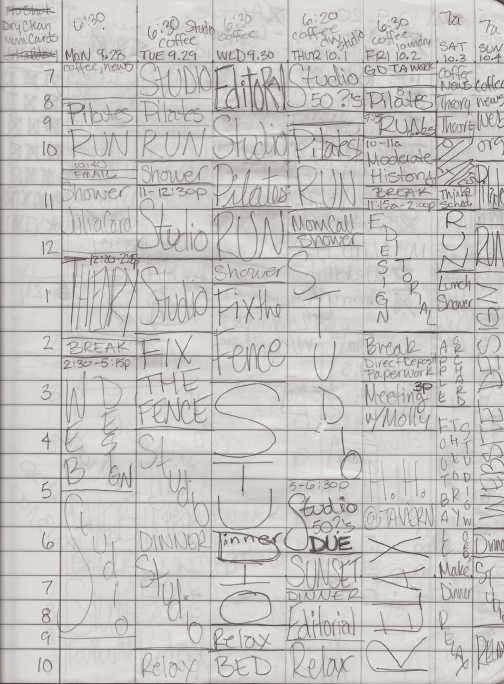 Dry Clean
6:30
MON 9.28
coffee, news
Pilates
RUN
EMAIL
Shower
THEORY
BREAK
2:30-5:15p
WEB
DESIGN
Studio
6:30
coffee
Studio
TUE 9.29
STUDIO
Pilates
RUN
Shower
11-12:30p
Studio
Studio
FIX
THE
FENCE
Studio
DINNER
Studio
Relax
6:30
coffee
WED 9.30
Editorial
Studio
Pilates
RUN
Shower
Fix the
Fence
STUDIO
Dinner
Relax
BED
6:20
coffee
Studio
THUR 10.1
Studio
50 ?'s
Pilates
RUN
Mom Call
Shower
STUDIO
5-6:30p
Studio
50?'s
DUE
SUNSET
DINNER
Editorial
Relax
6:30
coffee
laundry
FRI 10.2
GO TO WORK
Pilates
RUN
10-11a
Moderate
History
BREAK
11:15a-2:00p
EDITORIAL
DESIGN
Break
Direct Deposit
Paperwork
Meeting 3p
w/Molly
H.H.
@TAVERN
RELAX
7a
SAT
10.3
Coffee
News
Theory
Theory
Think
RUN
Lunch
Shower
Make
Dinner
RELAX
7a
SUN
10.4
coffee
news
RUN
WEBSITE
Dinner
Relax
7
8
9
10
11
12
1
2
3
4
5
6
7
8
9
10